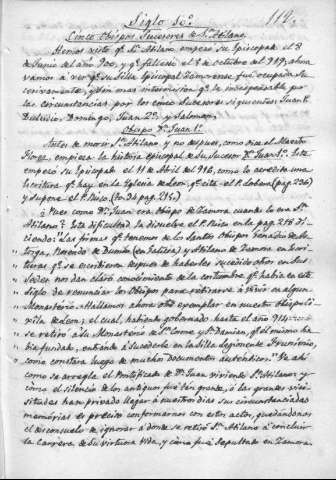 Siglo 10º
112.
Cinco Obispos Sucesores de Sn. Atilano
Hemos visto qe. Sn. Atilano empezó su Episcopado el 8
de Junio del año 900, y qe. falleció el 5 de octubre del 919, ahora
vamos á ver qe. su Silla Episcopal Zamorense fué ocupada su
cesivamente, y sin mas intermisión qe. la indispensable por
las circunstancias por los cinco sucesores siguientes: Juan 1º
Dulcidio, Domingo, Juan 2º y Salomon.
Obispo Dn. Juan 1º
Antes de morir Sn. Atilano y no despues, como dice el Maestro
Florez, empieza la historia episcopal de su Sucesor Dn. Juan 1º. Este
empezó su Episcopado el 11 de Abril del 916, como lo acredita una
Escritura qe. hay en la Iglesia de Leon, qe. cita el P. Lobera (pag. 236)
y supone el P. Risco (to. 34 pag. 214)
¿Pues como Dn. Juan era Obispo de Zamora cuando lo era Sn.
Atilano? Esta dificultad la disuelve el P. Risco en la pag. 215 di
ciendo: "Las firmas qe. tenemos de los Santos Obispos Genadio de As
torga, Rosendo de Dumio (en Galicia) y Atilano de Zamora en Escri
turas qe. se escribieron despues de haberles sucedido otros en sus
Sedes nos dan claro conocimiento de la costumbre qe. habia en este
siglo de renunciar los Obispos para retirarse á vivir en algun
Monasterio. Hallamos ahora otro exemplar en nuestro Obispo
xila de Leon; el cual, habiendo gobernado hasta el año 914
se retiró á su Monasterio de Sn. Cosme y Sn. Damian, qe. el mismo ha
bia fundado, entrando á sucederle en la Silla legionense Frunimio,
como constará luego de muchos documentos autenticos." He ahí
como se arregla el Pontificado de Dn. Juan viviendo Sn. Atilano; y
como el silencio de los antiguos fué tan grande, ó las grandes vici
situdes han privado llegar á nuestros dias sus circunstanciadas
memorias es preciso conformarnos con estos actos, quedándonos
el desconsuelo de ignorar á donde se retiró Sn. Atilano á concluir
la carrera de su virtuosa vida, y como fué sepultado en Zamora.